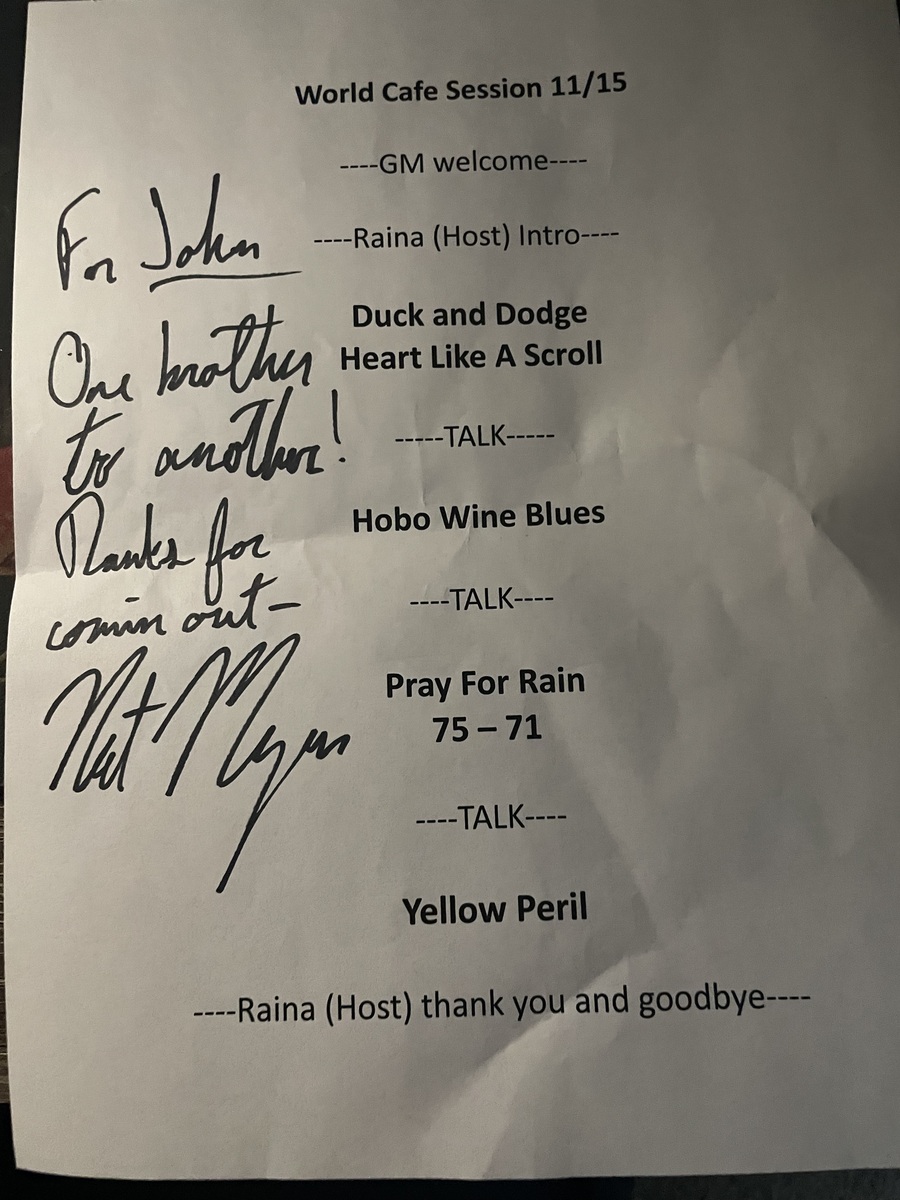 World Cafe Session 11/15
----GM welcome----
----Raina (Host) Intro----
Duck and Dodge
Heart Like A Scroll
-----TALK-----
Hobo Wine Blues
----TALK----
Pray For Rain
75 – 71
----TALK----
Yellow Peril
----Raina (Host) thank you and goodbye----
For John
One brother
to another!
Thanks for
comin out-
Nat Myers